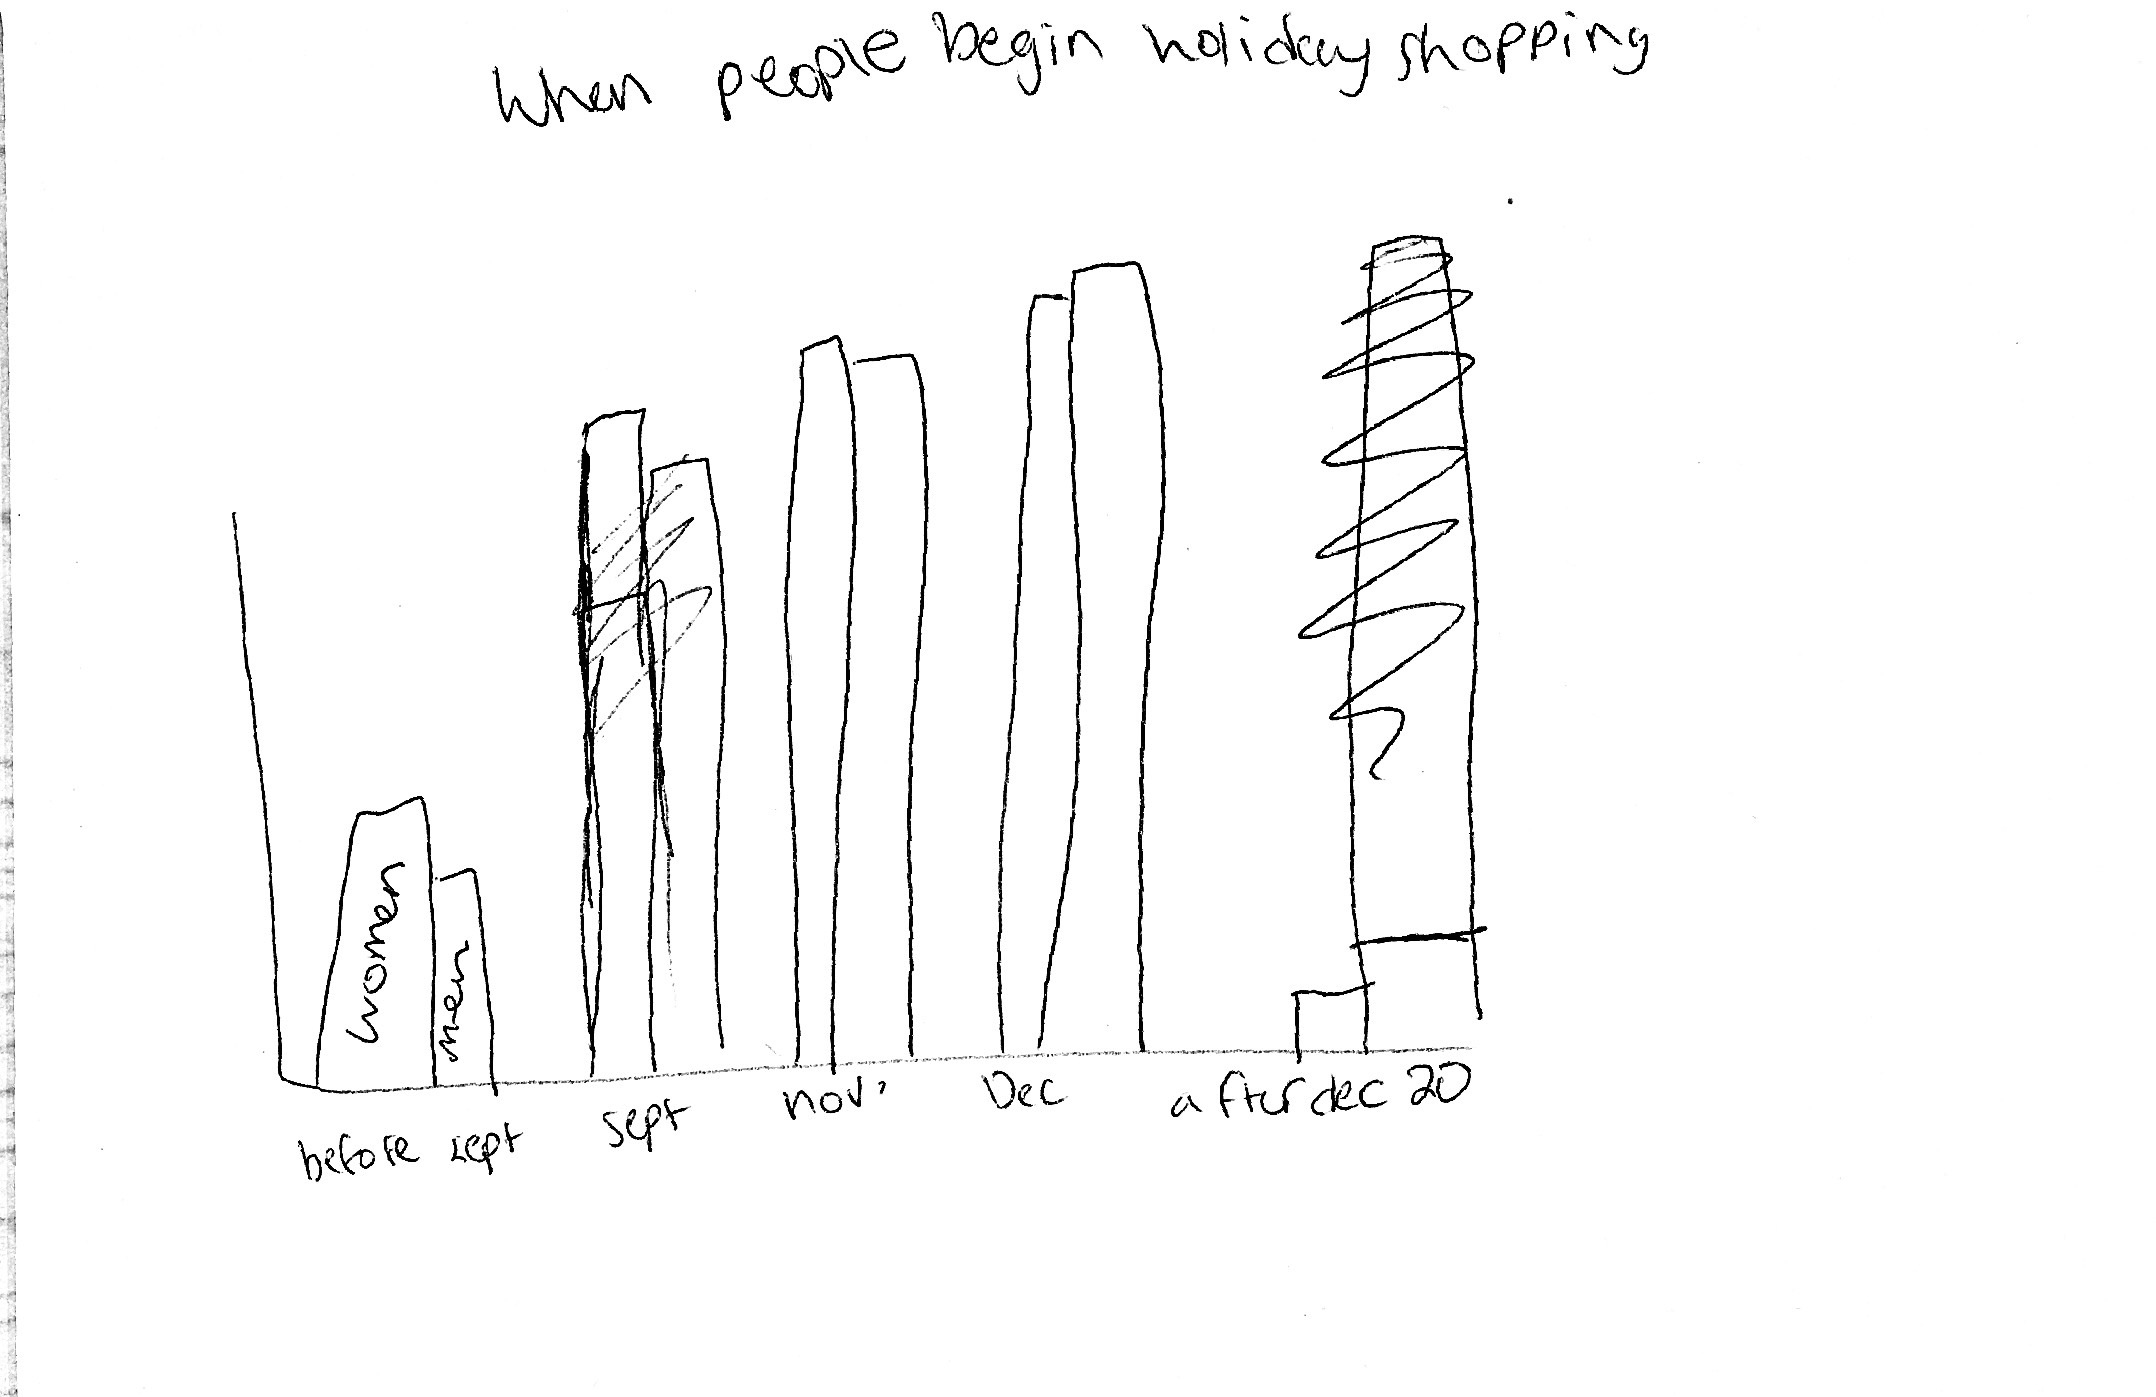 When people begin holiday shopping
women
men
before sept
sept
nov'
Dec
after dec 20